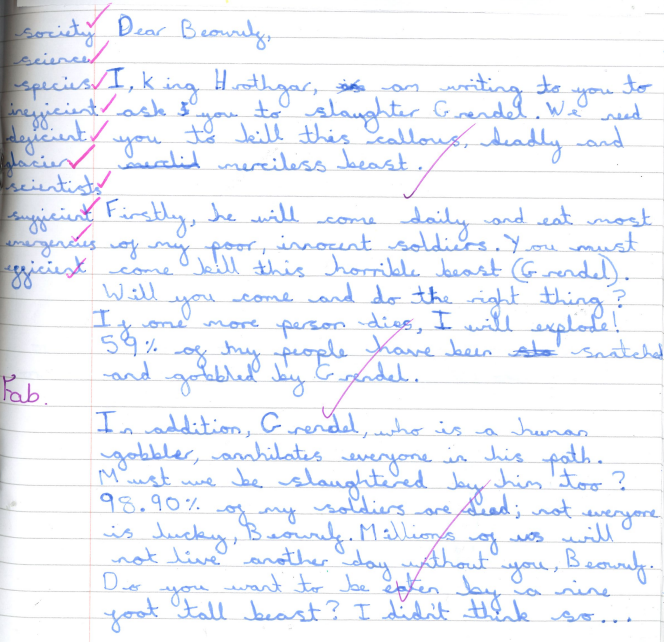 society
science
species
inefficient
deficient
glacier
scientists
sufficient
emergencies
efficient
Fab.
Dear Beowulf,
I, King Hrothgar, am writing to you to
ask you to slaughter Grendel. We need
you to kill this callous, deadly and
merciless beast.
Firstly, he will come daily and eat most
of my poor, innocent soldiers. You must
come kill this horrible beast (Grendel).
Will you come and do the right thing?
If one more person dies, I will explode!
59% of my people have been snatched
and gobbled by Grendel.
In addition, Grendel, who is a human
gobbler, annhilates everyone in his path.
Must we be slaughtered by him too?
98.90% of my soldiers are dead; not everyone
is lucky, Beowulf. Millions of us will
not live another day without you, Beowulf.
Do you want to be eaten by a nine
foot tall beast? I didn't think so...